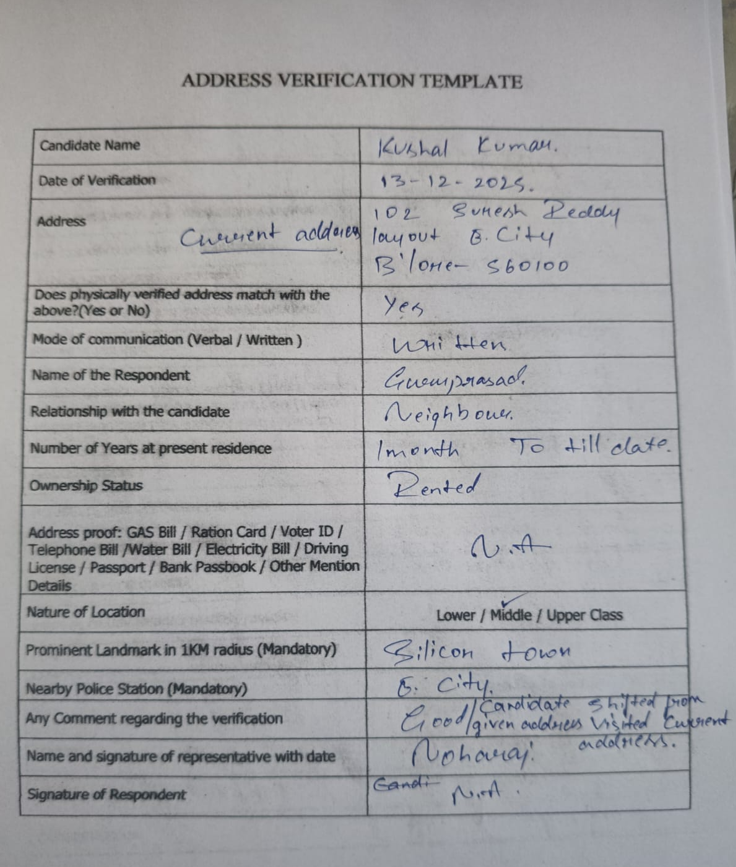 ADDRESS VERIFICATION TEMPLATE
Candidate Name Kushal Kumar.
Date of Verification 13-12-2025.
Address Current address 102 Suresh Reddy
layout E. City
B'lore- 560100
Does physically verified address match with the
above?(Yes or No) Yes
Mode of communication (Verbal / Written ) Written
Name of the Respondent Guruprasad.
Relationship with the candidate Neighbour.
Number of Years at present residence 1month To till date.
Ownership Status Rented
Address proof: GAS Bill / Ration Card / Voter ID /
Telephone Bill /Water Bill / Electricity Bill / Driving
License / Passport / Bank Passbook / Other Mention
Details N.A
Nature of Location Lower / Middle / Upper Class
Prominent Landmark in 1KM radius (Mandatory) Silicon town
Nearby Police Station (Mandatory) E. City.
Any Comment regarding the verification Good/Candidate shifted from
given address visited Current
address.
Name and signature of representative with date
Signature of Respondent N.A.